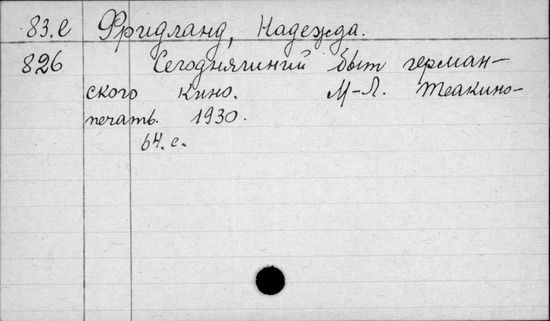 83.е Фридланд, Надежда.
826 Сегодняшний быт герман-
ского кино. М-Л. Теакино-
печать. 1930.
64.с.